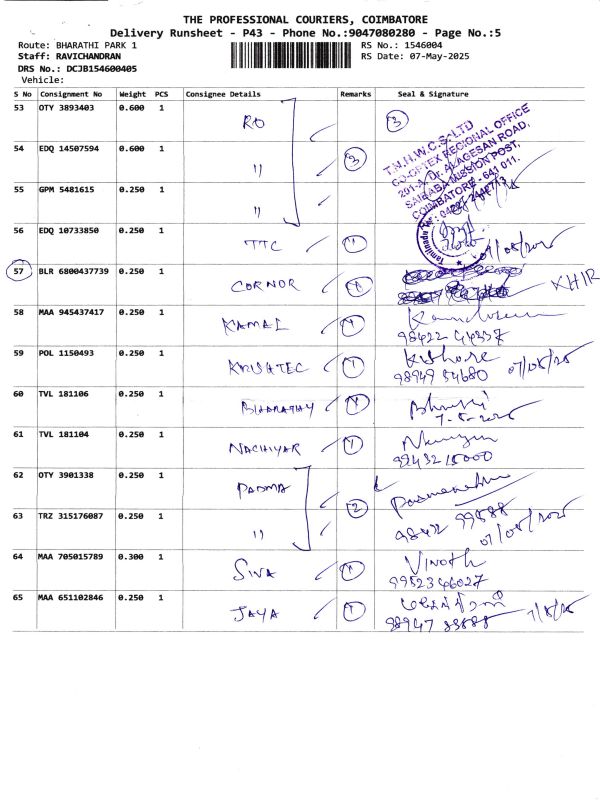 THE PROFESSIONAL COURIERS, COIMBATORE
Delivery Runsheet - P43 - Phone No.:9047080280 - Page No.:5
Route: BHARATHI PARK 1 RS No.: 1546004
Staff: RAVICHANDRAN RS Date: 07-May-2025
DRS No.: DCJB154600405
Vehicle:
S No Consignment No Weight PCS Consignee Details Remarks Seal & Signature
53 OTY 3893403 0.600 1 RO 3
T.N.H.W.C.S. LTD
CO-OPTEX REGIONAL OFFICE
201-A, Dr. ALAGESAN ROAD,
SAIBABA MISSION POST,
COIMBATORE - 641 011.
54 EDQ 14507594 0.600 1 " 3
55 GPM 5481615 0.250 1 "
56 EDQ 10733850 0.250 1 TTC 1 07/05/2025
57 BLR 6800437739 0.250 1 CORNOR 1 KHIR
58 MAA 945437417 0.250 1 KAMAL 1
98422 44337
59 POL 1150493 0.250 1 KRISHTEC 1 Kishore 07/05/25
98949 54680
60 TVL 181106 0.250 1 BHARATHY 1
7-5-2025
61 TVL 181104 0.250 1 NACHIYAR 1
62 OTY 3901338 0.250 1 PADMA 2
63 TRZ 315176087 0.250 1 " 98422 99588
07/05/2025
64 MAA 705015789 0.300 1 SIVA 1 Vinoth
9952346027
65 MAA 651102846 0.250 1 JAYA 1 7/5/25
98947 83888